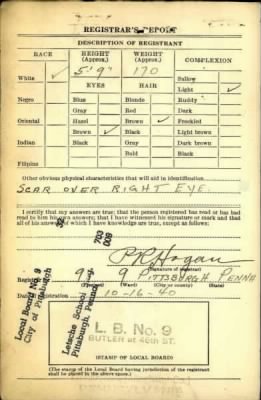 REGISTRAR'S REPORT
DESCRIPTION OF REGISTRANT
RACE HEIGHT (Approx.) WEIGHT (Approx.) COMPLEXION
5' 9" 170
White ✓ Sallow
EYES HAIR Light ✓
Negro Blue Blonde Ruddy
Gray Red Dark
Oriental Hazel Brown ✓ Freckled
Brown ✓ Black Light brown
Indian Black Gray Dark brown
Bald Black
Filipino
Other obvious physical characteristics that will aid in identification
SCAR OVER RIGHT EYE.
I certify that my answers are true; that the person registered has read or has had
read to him his own answers; that I have witnessed his signature or mark and that
all of his answers of which I have knowledge are true, except as follows:
703
009
P R Hogan
(Signature of registrar)
Registrar 9 9 PITTSBURGH PENNA
(City or county) (State)
registration 10-16-40
Local Board No. 9
City of Pittsburgh
Letsche School
Pittsburgh, Penna.
L. B. No. 9
BUTLER at 46th ST.
(STAMP OF LOCAL BOARD)
(The stamp of the Local Board having jurisdiction of the registrant
shall be placed in the above space.)